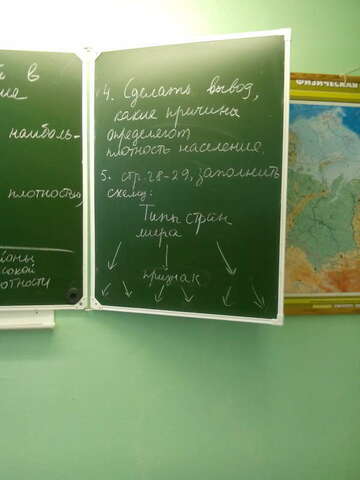 й в
наиболь-
плотностью
4. Сделать вывод,
какие причины
определяют
плотность населения.
5. стр. 28-29, заполнить
схему:
Типы стран
мира
признак
ФИЗИЧЕСКАЯ